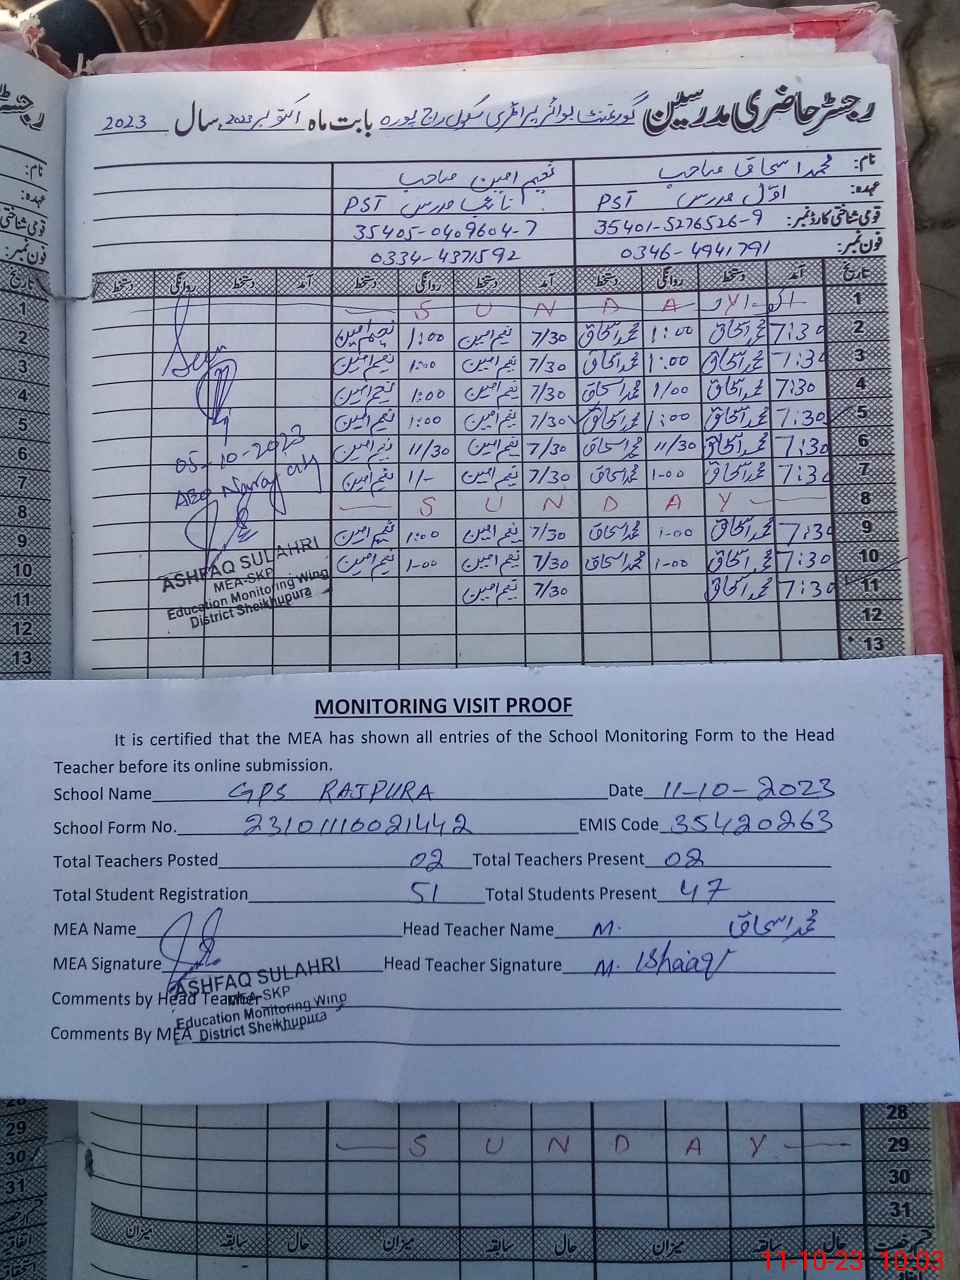 رجسٹر حاضری مدرسین گورنمنٹ بوائز پرائمری سکول راجپورہ بابت ماہ اکتوبر 2023 سال 2023
نام: محمد اسحاق صاحب نعیم امین صاحب
عہدہ: اول مدرس PST نائب مدرس PST
قومی شناختی کارڈ نمبر: 35401-5276526-9 35405-0409604-7
فون نمبر: 0346-4941791 0334-4371592
تاریخ آمد دستخط روانگی دستخط آمد دستخط روانگی دستخط آمد دستخط روانگی دستخط
1 S U N D A Y
2 7:30 محمد اسحاق 1:00 محمد اسحاق 7/30 نعیم امین 1:00 نعیم امین
3 7:30 محمد اسحاق 1:00 محمد اسحاق 7/30 نعیم امین 1:00 نعیم امین
4 7:30 محمد اسحاق 1/00 محمد اسحاق 7/30 نعیم امین 1:00 نعیم امین
5 7:30 محمد اسحاق 1:00 محمد اسحاق 7/30 نعیم امین 1:00 نعیم امین
6 7:30 محمد اسحاق 11/30 محمد اسحاق 7/30 نعیم امین 11/30 نعیم امین
7 7:30 محمد اسحاق 1-00 محمد اسحاق 7/30 نعیم امین 1/- نعیم امین
8 S U N D A Y
9 7:30 محمد اسحاق 1-00 محمد اسحاق 7/30 نعیم امین 1:00 نعیم امین
10 7:30 محمد اسحاق 1-00 محمد اسحاق 7/30 نعیم امین 1-00 نعیم امین
11 7:30 محمد اسحاق 7/30 نعیم امین
12
13
05-10-2023
ASHFAQ SULAHRI
MEA-SKP
Education Monitoring Wing
District Sheikhupura
MONITORING VISIT PROOF
It is certified that the MEA has shown all entries of the School Monitoring Form to the Head
Teacher before its online submission.
School Name GPS RAJPURA Date 11-10-2023
School Form No. 23101110021442 EMIS Code 35420263
Total Teachers Posted 02 Total Teachers Present 02
Total Student Registration 51 Total Students Present 47
MEA Name Head Teacher Name M. محمد اسحاق
MEA Signature Head Teacher Signature M. Ishaaq
ASHFAQ SULAHRI
Comments by Head Teacher
MEA-SKP
Education Monitoring Wing
Comments By MEA
District Sheikhupura
28
29 S U N D A Y
30
31
حال سابقہ میزان حال سابقہ میزان حال سابقہ میزان
11-10-23 10:03